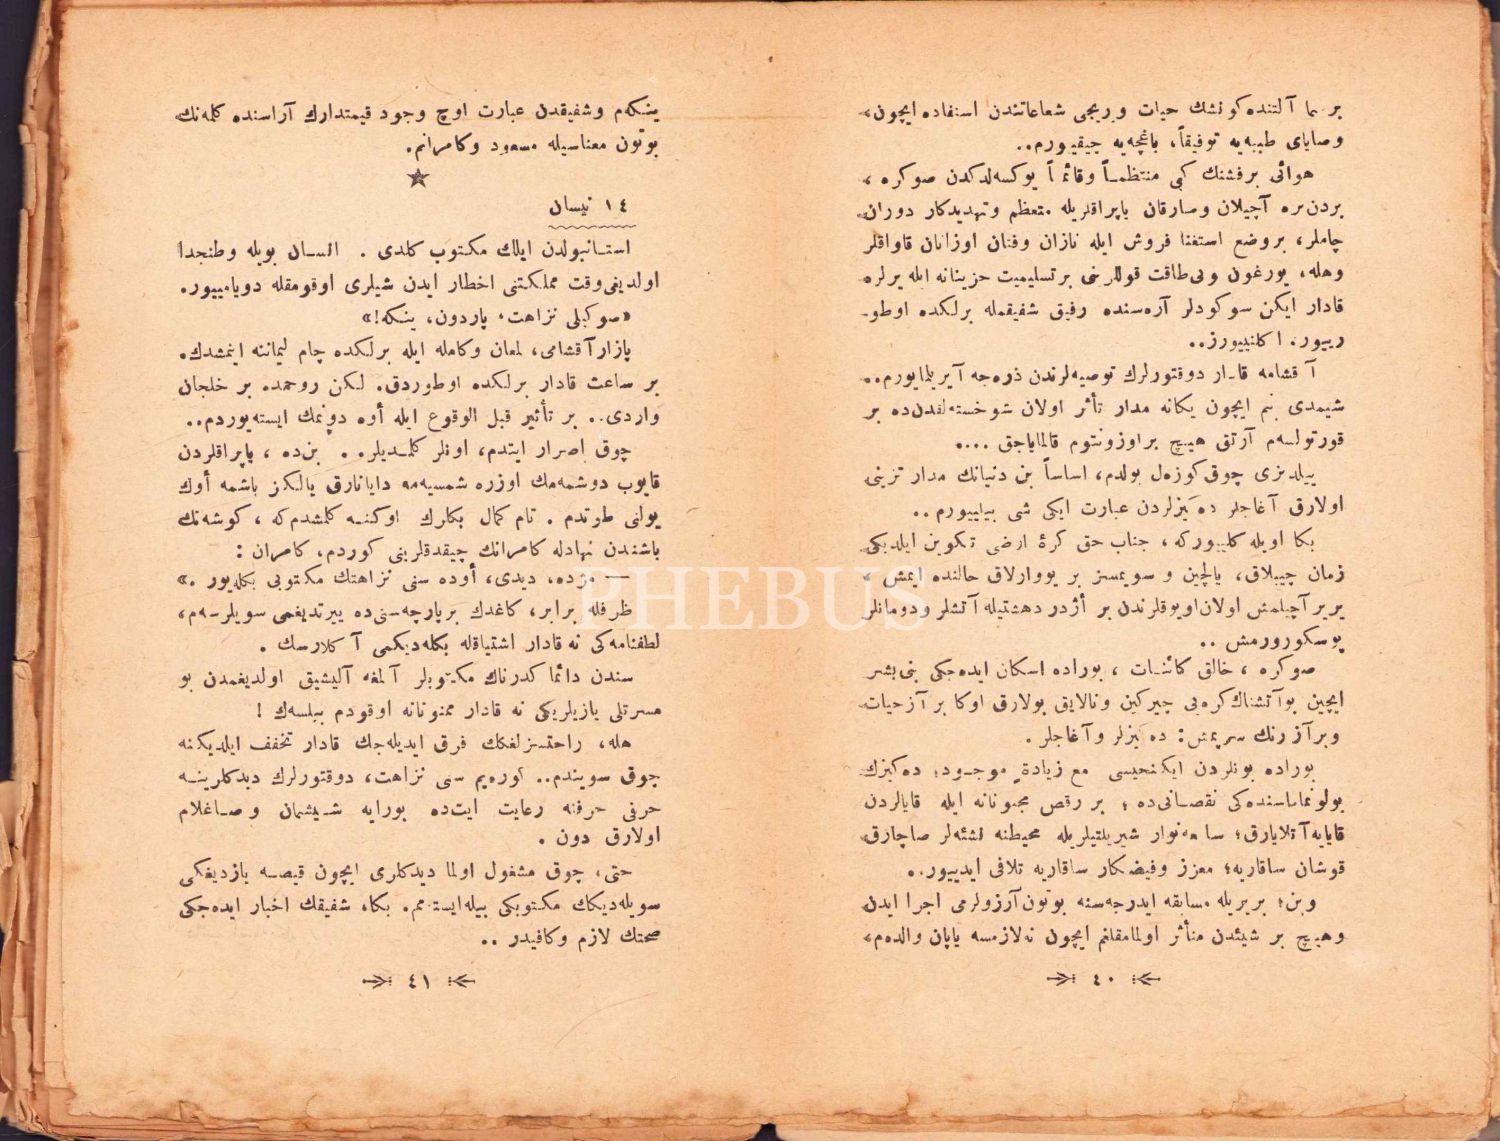 بر سما آلتنده كونشك حيات ويريجى شعاعاتندن استفاده ايچون،
وصاياى طبيه‌يه توفيقاً، باغچه‌يه چيقيورم..
هوائى برفشنك كبى منتظماً وقائماً يوكسه‌لدكدن صوكره ،
بردن‌بره آچيلان وصارقان ياپراقلريله متعظم وتهديدكار دوران
چاملر، بروضع استغنا فروش ايله نازان وفتان اوزانان قاواقلر
وهله، يورغون وبى‌طاقت قوللرينى برتسليميت حزينانه ايله يرلره
قادار ايكن سوكودلر آره‌سنده رفيق شفيقمله برلكده اوطو-
رييور. اكلنييورز..
آقشامه قادار دوقتورلرك توصيه‌لرندن ذره‌جه آيريلمايورم..
شيمدى بنم ايچون يكانه مدار تأثر اولان شوخسته‌لقدن‌ده بر
قورتولسه‌م آرتق هيچ براوزونتوم قالماياجق ....
ييلديزى چوق كوزه‌ل بولدم، اساساً بن دنيانك مدار تزينى
اولارق آغاجلر ده‌كيزلردن عبارت ايكى شى بيلييورم ..
بكا اويله كلييوركه ، جناب حق كرهٔ ارضى تكوين ايلديكى
زمان چيپلاق، يالچين و سويمسز بر يووارلاق حالنده ايمش ،
يربر آچيلمش اولان‌اويوقلرندن بر أژدر دهشتيله آتشلر ودومانلر
پوسكورورمش ..
صوكره ، خالق كائنات ، بوراده اسكان ايده‌جكى بنى‌بشر
ايچين بوآتشناك‌كره‌يى چيركين ونالايق بولارق اوكا بر آزحيات
وبرآز رنك سرپمش: ده‌كيزلر وآغاجلر .
بوراده بونلردن ايكنجيسى مع زيادةٍ موجود؛ ده‌كيزك
بولونماماسنده‌كى نقصانى‌ده ؛ بر رقص مجنونانه ايله قايالردن
قايايه‌آتلايارق؛ سامعه‌نواز شيريلتيلريله محيطنه نشئه‌لر صاچارق
قوشان ساقاريه؛ معزز وفيضكار ساقاريه تلافى ايدييور..
وبن؛ بربريله مسابقه ايدرجه‌سنه بوتون‌آرزولرمى اجرا ايدن
وهيچ بر شيئدن متأثر اولمامقلغم ايچون نه‌لازمسه ياپان والده‌م،
٤٠
ينكه‌م وشفيقدن عبارت اوچ وجود قيمتدارك آراسنده كلمه‌نك
بوتون معناسيله مسعود وكامرانم.
١٤ نيسان
استانبولدن ايلك مكتوب كلدى . انسان بويله وطنجدا
اولديغى‌وقت مملكتنى اخطار ايدن شيلرى اوقومقله دويامييور.
«سوكيلى نزاهت، پاردون، ينكه!»
پازارآقشامى، لمعان وكامله ايله برلكده چام ليماننه ايتمشدك.
بر ساعت قادار برلكده اوطوردق. لكن روحمده بر خلجان
واردى.. بر تأثير قبل الوقوع ايله أوه دونمك ايسته‌يوردم..
چوق اصرار ايتدم، اونلر كلمديلر.. بن‌ده ، ياپراقلردن
قايوب دوشمه‌مك اوزره شمسيه‌مه دايانارق يالكز باشمه أوك
يولنى طوتدم . تام كمال بكلرك اوكنه كلمشدم‌كه ، كوشه‌نك
باشندن نهادله كامرانك چيقدقلرينى كوردم، كامران :
— مژده، ديدى، أوده سنى نزاهتك مكتوبى بكله‌يور .»
ظرفله برابر، كاغدك برپارچه‌سنى‌ده ييرتديغمى سويلرسه‌م،
لطفنامه‌كى نه قادار اشتياقله بكله‌ديكمى آكلارسك .
سندن دائما كدرناك مكتوبلر آلمغه آليشيق اولديغمدن بو
مسرتلى يازيلريكى نه قادار ممنونانه اوقودم بيلسه‌ك !
هله، راحتسزلغكك فرق ايديله‌جك قادار تخفف ايلديكنه
چوق سويندم.. كوره‌يم سنى نزاهت، دوقتورلرك ديدكلرينه
حرفى حرفنه رعايت ايت‌ده بورايه شيشمان وصاغلام
اولارق دون .
حتى، چوق مشغول اولما ديدكلرى ايچون قيصه يازديغكى
سويله‌ديكك مكتوبكى بيله‌ايسته‌مم. بكا، شفيقك اخبار ايده‌جكى
صحتك لازم وكافيدر ..
٤١
PHEBUS